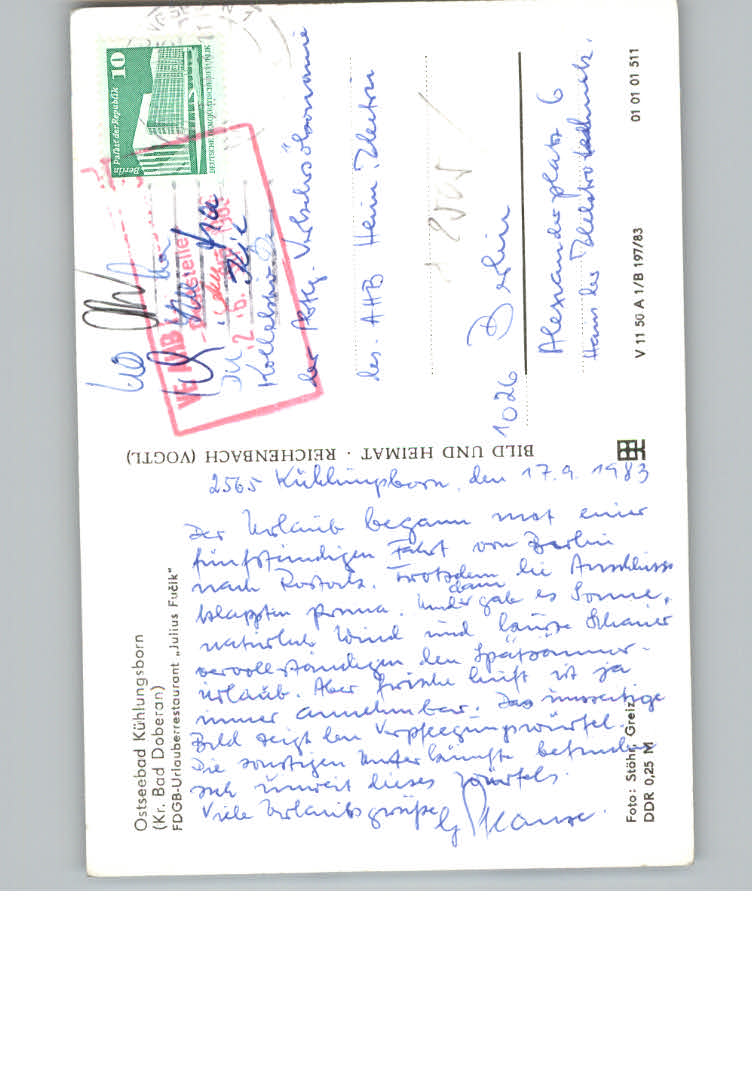 Ostseebad Kühlungsborn
(Kr. Bad Doberan)
FDGB-Urlauberrestaurant „Julius Fučík"
2565 Kühlungsborn, den 17.9.1983
Der Urlaub begann mit einer
fünfstündigen Fahrt von Berlin
nach Rostock. Trotzdem die Anschlüsse
klappten prima. Und dann gab es Sonne,
natürlich Wind und kurze Schauer
vervollständigen den Spätsommer-
urlaub. Aber frische Luft ist ja
immer annehmbar. Das umseitige
Bild zeigt den Verpflegungswürfel.
Die sonstigen Unterkünfte befinden
sich unweit dieses Würfels.
Viele Urlaubsgrüße
Foto: Stöhr, Greiz
DDR 0,25 M
BILD UND HEIMAT · REICHENBACH (VOGTL)
10
Palast der Republik
Berlin
DEUTSCHE DEMOKRATISCHE REPUBLIK
VE AHB
Kollektiv
der Abtlg. Valutaökonomie
des AHB Heim-Electric
1026 Berlin
Alexanderplatz 6
Haus der Elektrotechnik.
V 11 50 A 1/B 197/83
01 01 01 511